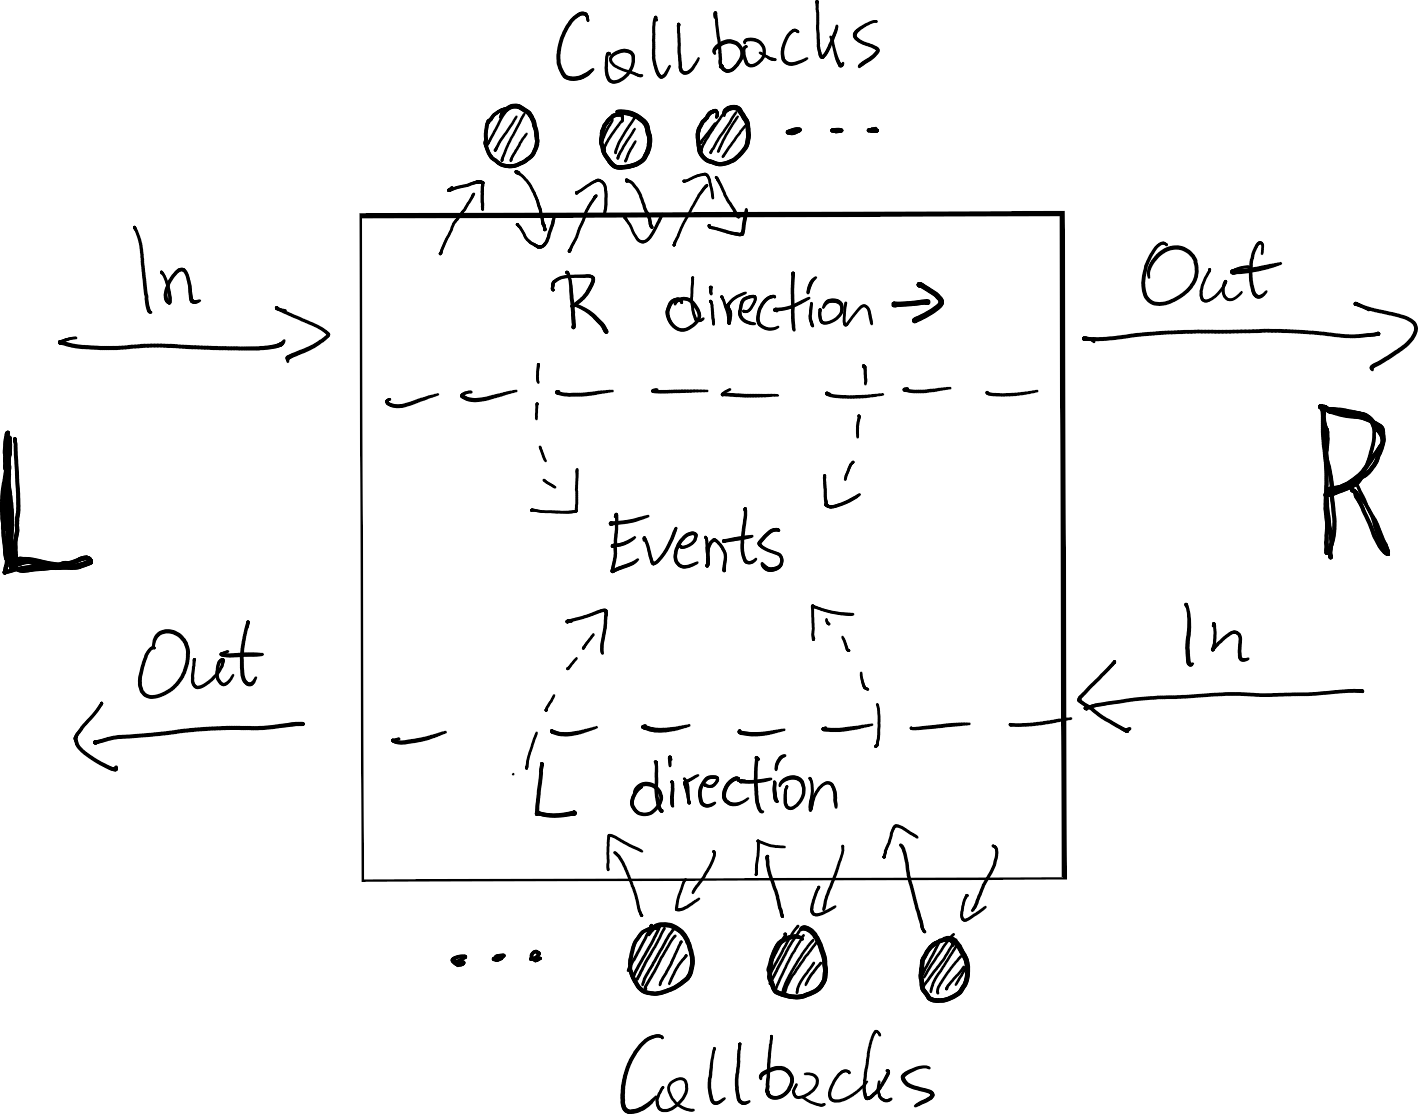 Callbacks
...
R direction →
In
Out
L
R
Events
Out
In
L direction
...
Callbacks